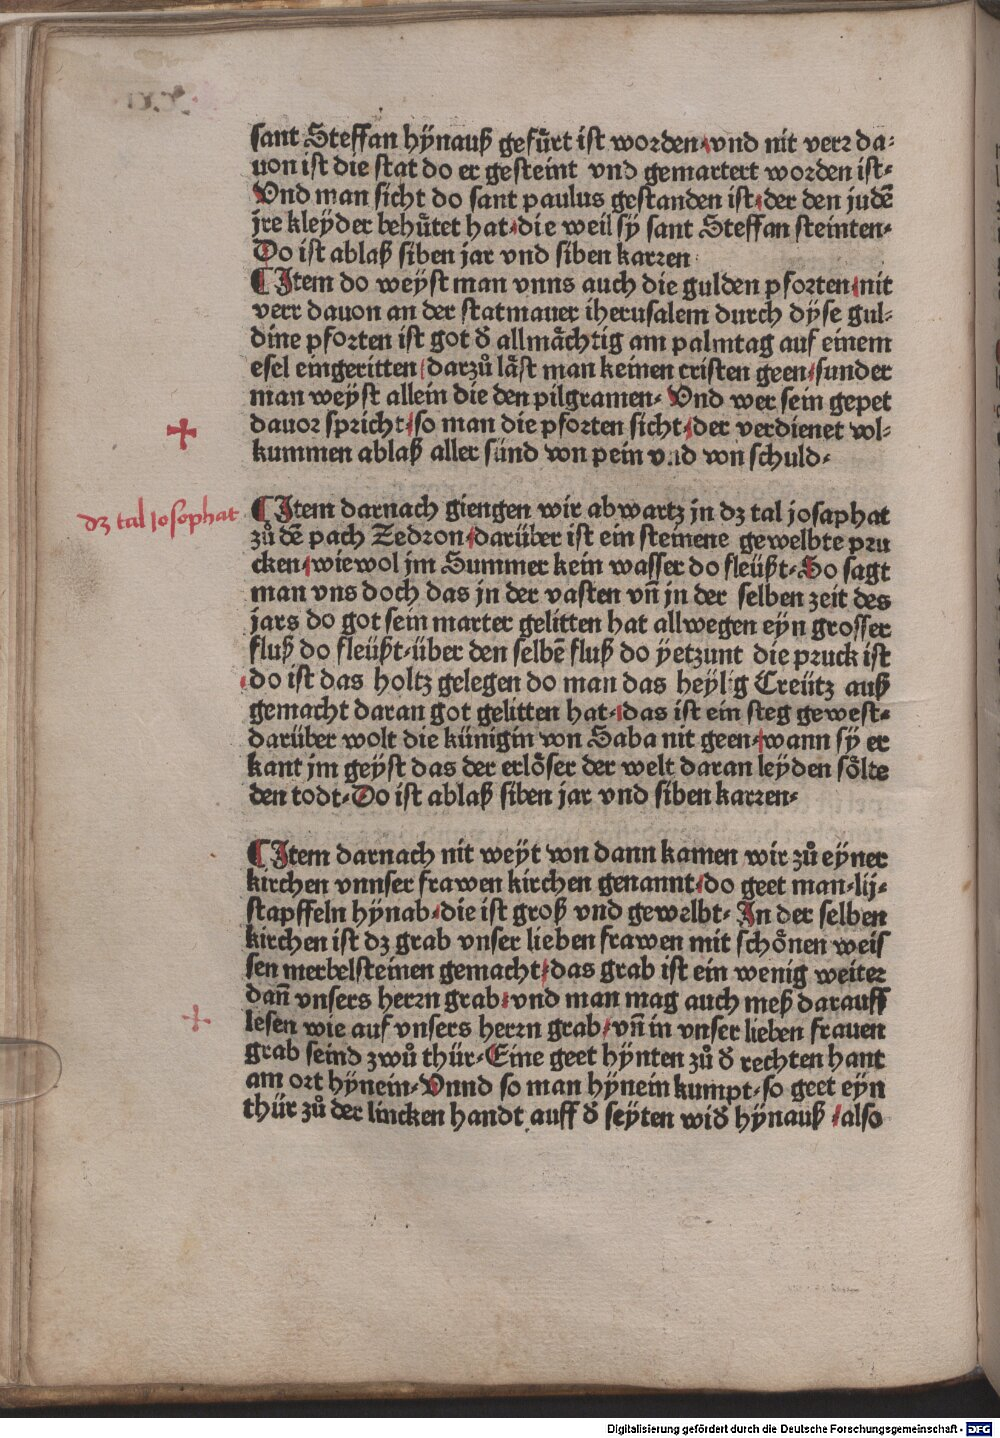 sant Steffan hÿnauß gefůrt ist worden vnd nit verꝛ da⸗
uon ist die stat do er gesteint vnd gemartert worden ist⸗
Vnd man sicht do sant paulus gestanden ist der den judē
jre kleyder behůtet hat die weil sÿ sant Steffan steinten⸗
Do ist ablaß siben jar vnd siben karꝛen
¶ Item do weyst man vnns auch die gulden pforten nit
verr dauon an der statmauer iherusalem durch dÿse gul⸗
dine pforten ist got ð allmåchtig am palmtag auf einem
esel eingeritten darzů låst man keinen cristen geen sunder
man weyst allein die den pilgramen⸗ Vnd wer sein gepet
dauoꝛ spricht so man die pforten sicht der verdienet vol⸗
kummen ablaß aller sünd von pein vnd von schuld⸗
dz tal Josophat
¶ Item darnach giengen wir abwartz in dz tal josaphat
zů dē pach Zedron darüber ist ein steinene gewelbte pru
cken wiewol jm Summer kein wasser do fleüßt⸗ So sagt
man vns doch das in der vasten vn̄ in der selben zeit des
jars do got sein marter gelitten hat allwegen eyn grosser
fluß do fleüßt⸗über den selbē fluß do ÿetzunt die pruck ist
do ist das holtz gelegen do man das heylig Creütz auß
gemacht daran got gelitten hat⸗ das ist ein steg gewest⸗
darüber wolt die künigin von Saba nit geen⸗ wann sÿ er
kant jm geÿst das der erlöser der welt daran leyden sölte
den todt⸗ Do ist ablaß siben jar vnd siben karꝛen⸗
¶ Item darnach nit weÿt von dann kamen wir zů eÿner
kirchen vnnser frawen kirchen genannt do geet man⸗lij⸗
stapffeln hÿnab die ist groß vnd gewelbt⸗ In der selben
kirchen ist dz grab vnser lieben frawen mit schönen weis
sen merbelsteinen gemacht das grab ist ein wenig weiter
dan̄ vnsers herꝛn grab vnd man mag auch meß darauff
lesen wie auf vnsers herꝛn grab vn̄ in vnser lieben frauen
grab seind zwů thür⸗Eine geet hÿnten zů ð rechten hant
am ort hÿnein⸗ Vnnd so man hÿnein kumpt⸗so geet eÿn
thür zů der lincken handt auff ð seÿten wið hÿnauß also
Digitalisierung gefördert durch die Deutsche Forschungsgemeinschaft - DFG